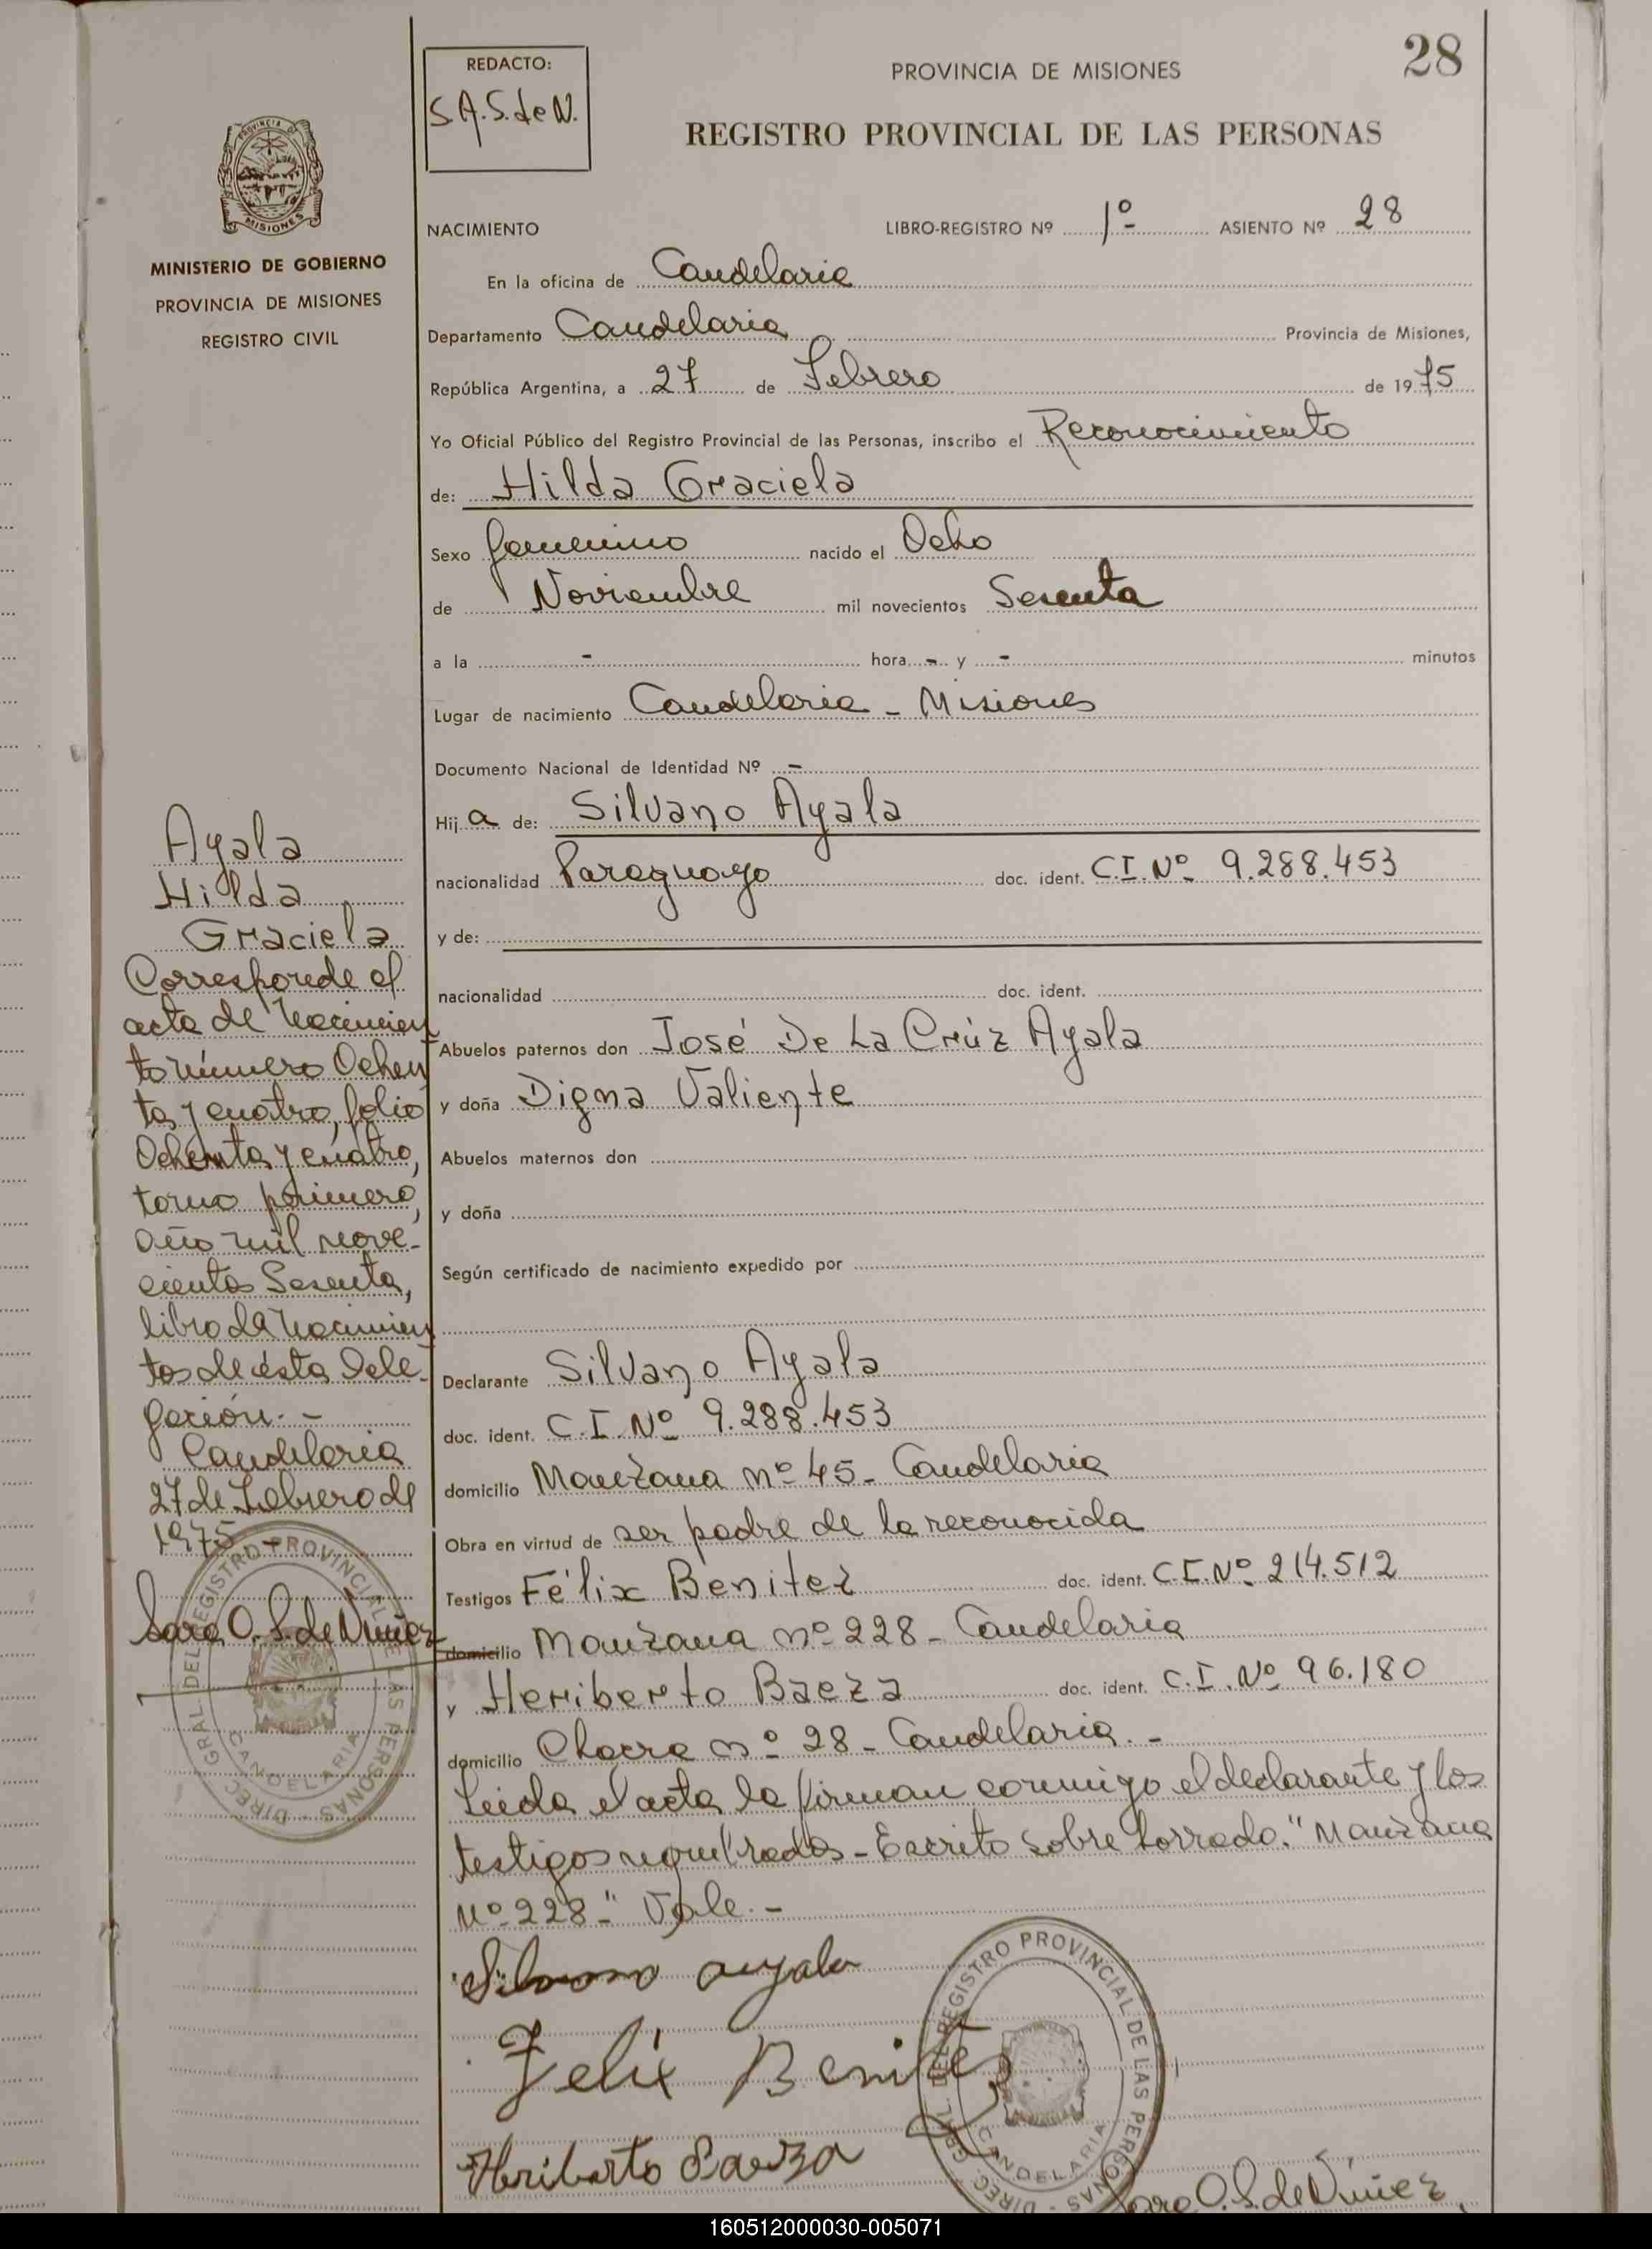 28
REDACTO:
S.A.S.deN.
PROVINCIA DE MISIONES
REGISTRO PROVINCIAL DE LAS PERSONAS
PROVINCIA DE
MISIONES
MINISTERIO DE GOBIERNO
PROVINCIA DE MISIONES
REGISTRO CIVIL
NACIMIENTO LIBRO-REGISTRO Nº 1º ASIENTO Nº 28
En la oficina de Candelaria
Departamento Candelaria Provincia de Misiones,
República Argentina, a 27 de Febrero de 1975
Yo Oficial Público del Registro Provincial de las Personas, inscribo el Reconocimiento
de: Hilda Graciela
Sexo femenino nacido el Ocho
de Noviembre mil novecientos Sesenta
a la - hora - y - minutos
Lugar de nacimiento Candelaria - Misiones
Documento Nacional de Identidad Nº -
Hija de: Silvano Ayala
nacionalidad Paraguayo doc. ident. C.I. Nº 9.288.453
y de:
nacionalidad doc. ident.
Abuelos paternos don José De La Crúz Ayala
y doña Digna Valiente
Abuelos maternos don
y doña
Según certificado de nacimiento expedido por
Declarante Silvano Ayala
doc. ident. C.I. Nº 9.288.453
domicilio Manzana nº 45 - Candelaria
Obra en virtud de ser padre de la reconocida
Testigos Félix Benitez doc. ident. C.I. Nº 214.512
domicilio Manzana nº 228 - Candelaria
y Heriberto Baeza doc. ident. C.I. Nº 96.180
domicilio Chacra nº 28 - Candelaria. -
Leida el acta la firman conmigo el declarante y los
testigos nombrados - Escrito sobre borrado: "Manzana
Nº 228" Vale. -
Silvano ayala
Felix Benitez
Heriberto Baeza
Sara O. S. de Núñez
DIREC. GRAL. DEL REGISTRO PROVINCIAL DE LAS PERSONAS
CANDELARIA
Ayala
Hilda
Graciela
Corresponde al
acta de Nacimien
to número Ochen
ta y cuatro, folio
Ochenta y cuatro,
tomo primero,
año mil nove-
cientos Sesenta,
libro de Nacimien
tos de ésta Dele-
gación. -
Candelaria
27 de Febrero de
1975 -
Sara O. S. de Núñez
DIREC. GRAL. DEL REGISTRO PROVINCIAL DE LAS PERSONAS
CANDELARIA
160512000030-005071